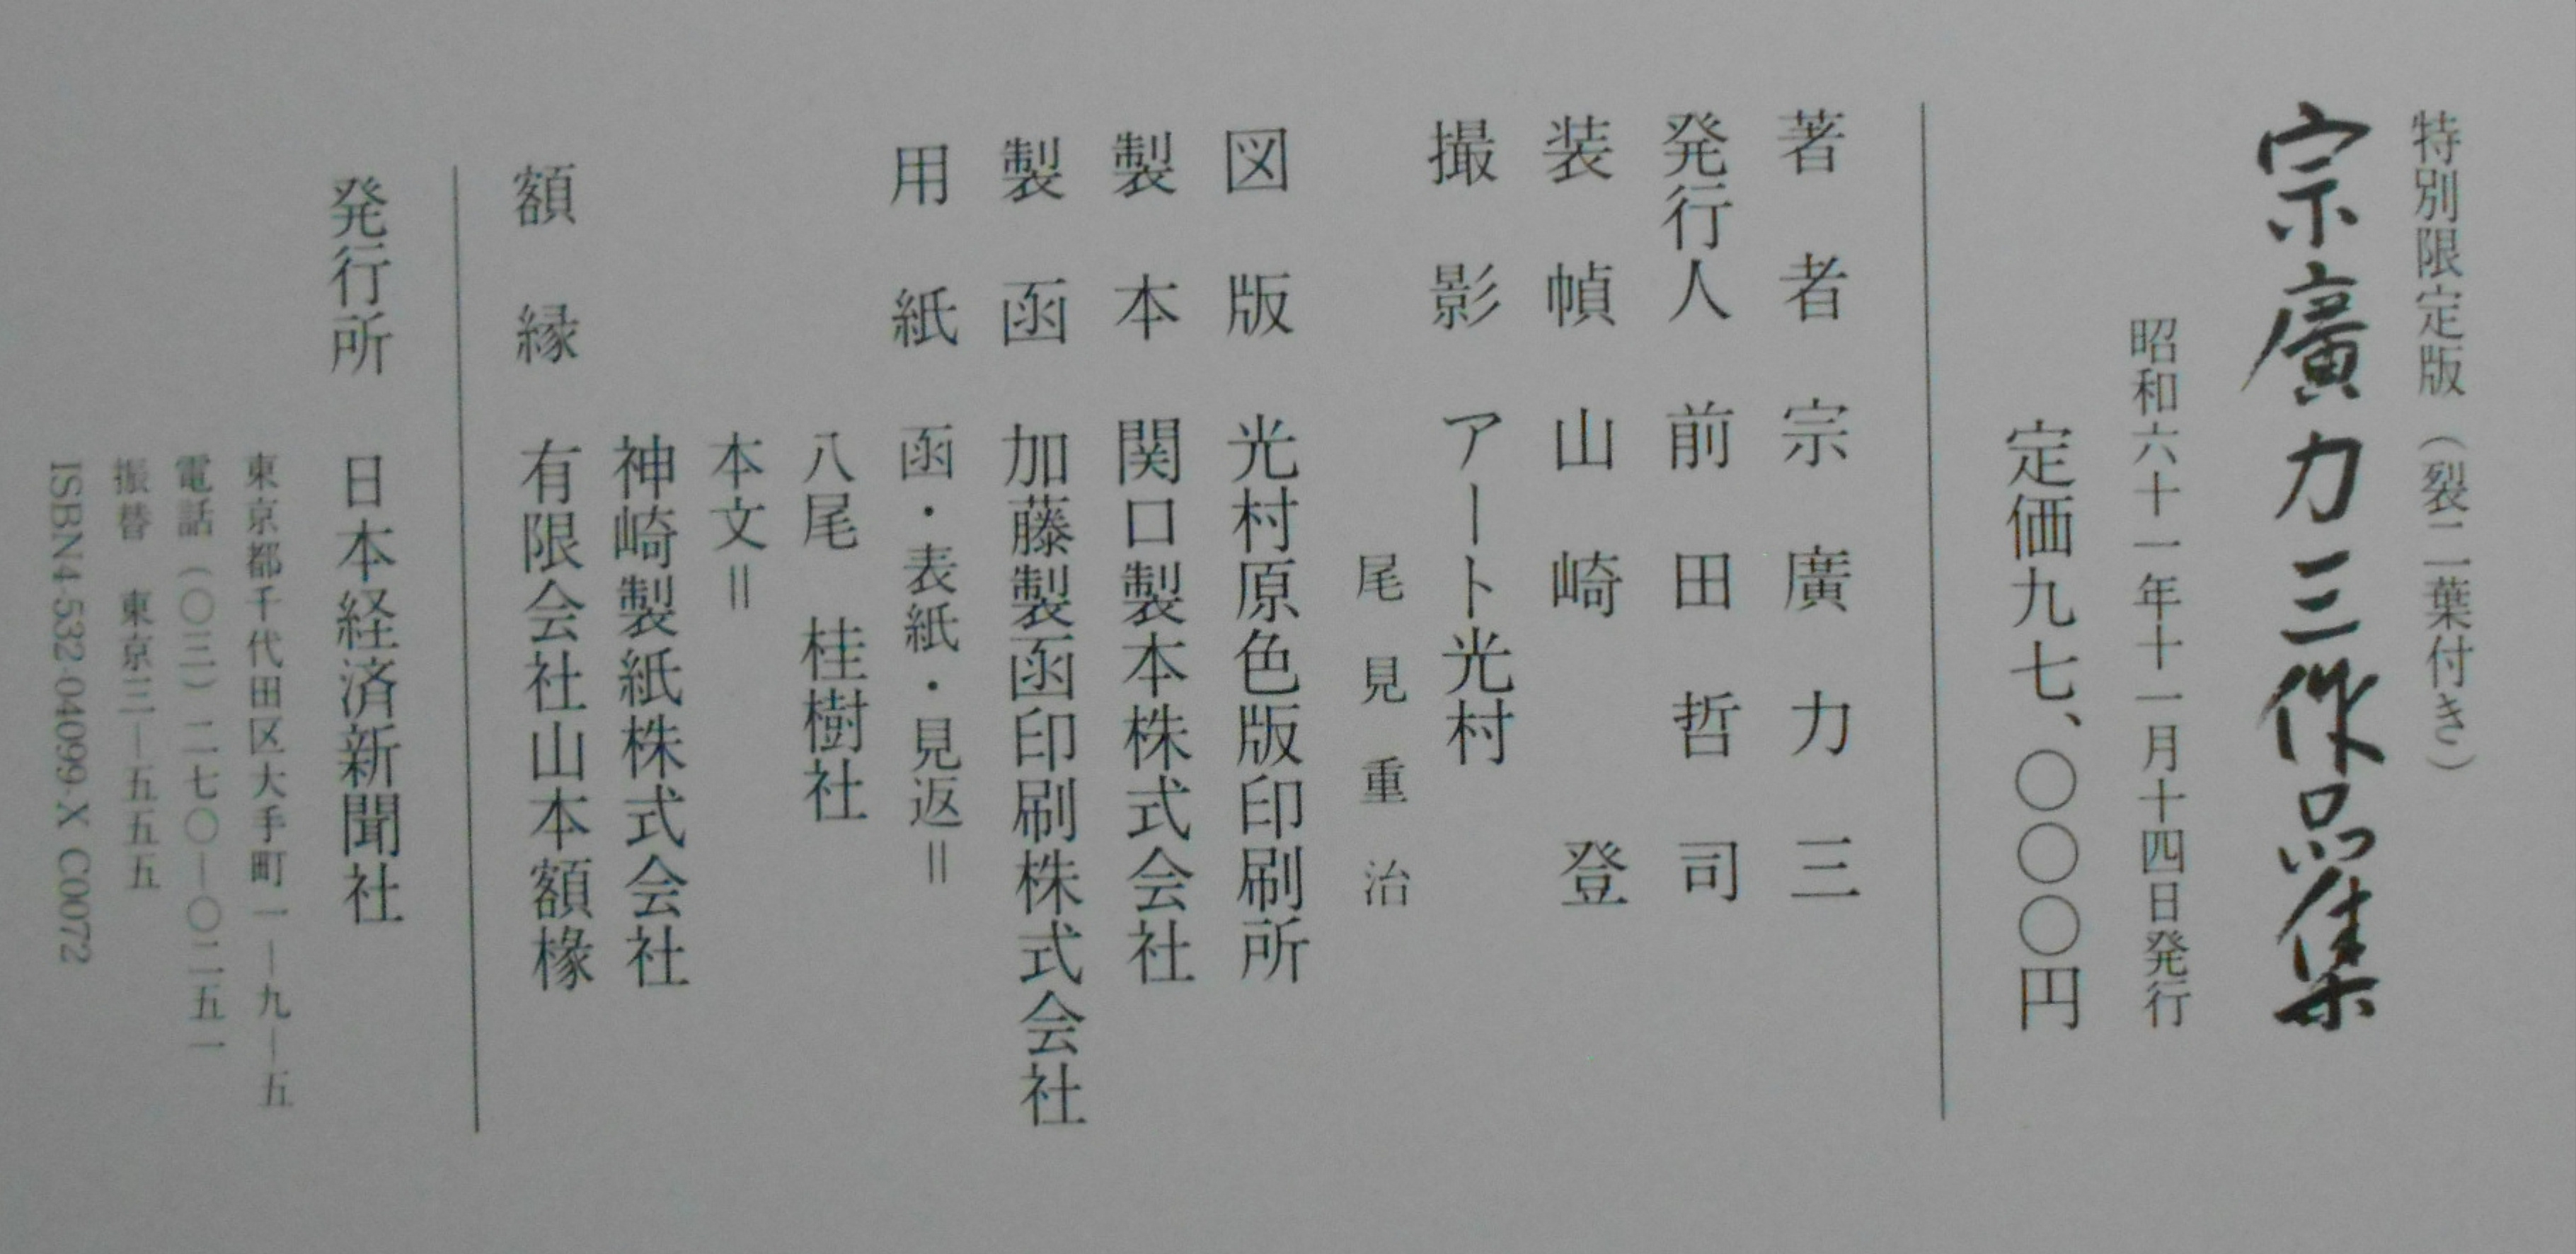 特別限定版（裂二葉付き）
宗廣力三作品集
昭和六十一年十一月十四日発行
定価九七、〇〇〇円
著者 宗廣力三
発行人 前田哲司
装幀 山崎登
撮影 アート光村
尾見重治
図版 光村原色版印刷所
製本 関口製本株式会社
製函 加藤製函印刷株式会社
用紙 函・表紙・見返＝
八尾 桂樹社
本文＝
神崎製紙株式会社
額縁 有限会社山本額椽
発行所 日本経済新聞社
東京都千代田区大手町一ー九ー五
電話（〇三）二七〇ー〇二五一
振替 東京三ー五五五
ISBN4-532-04099-X C0072